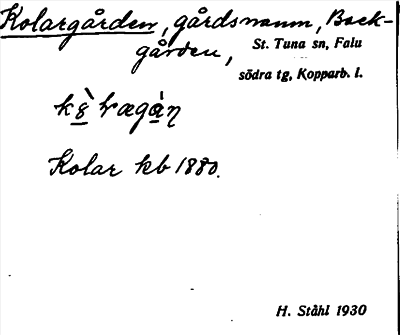 Kolargården, gårdsnamn, Back-
gården, St. Tuna sn, Falu
södra tg, Kopparb. l.
Kolar kb 1880.
H. Ståhl 1930